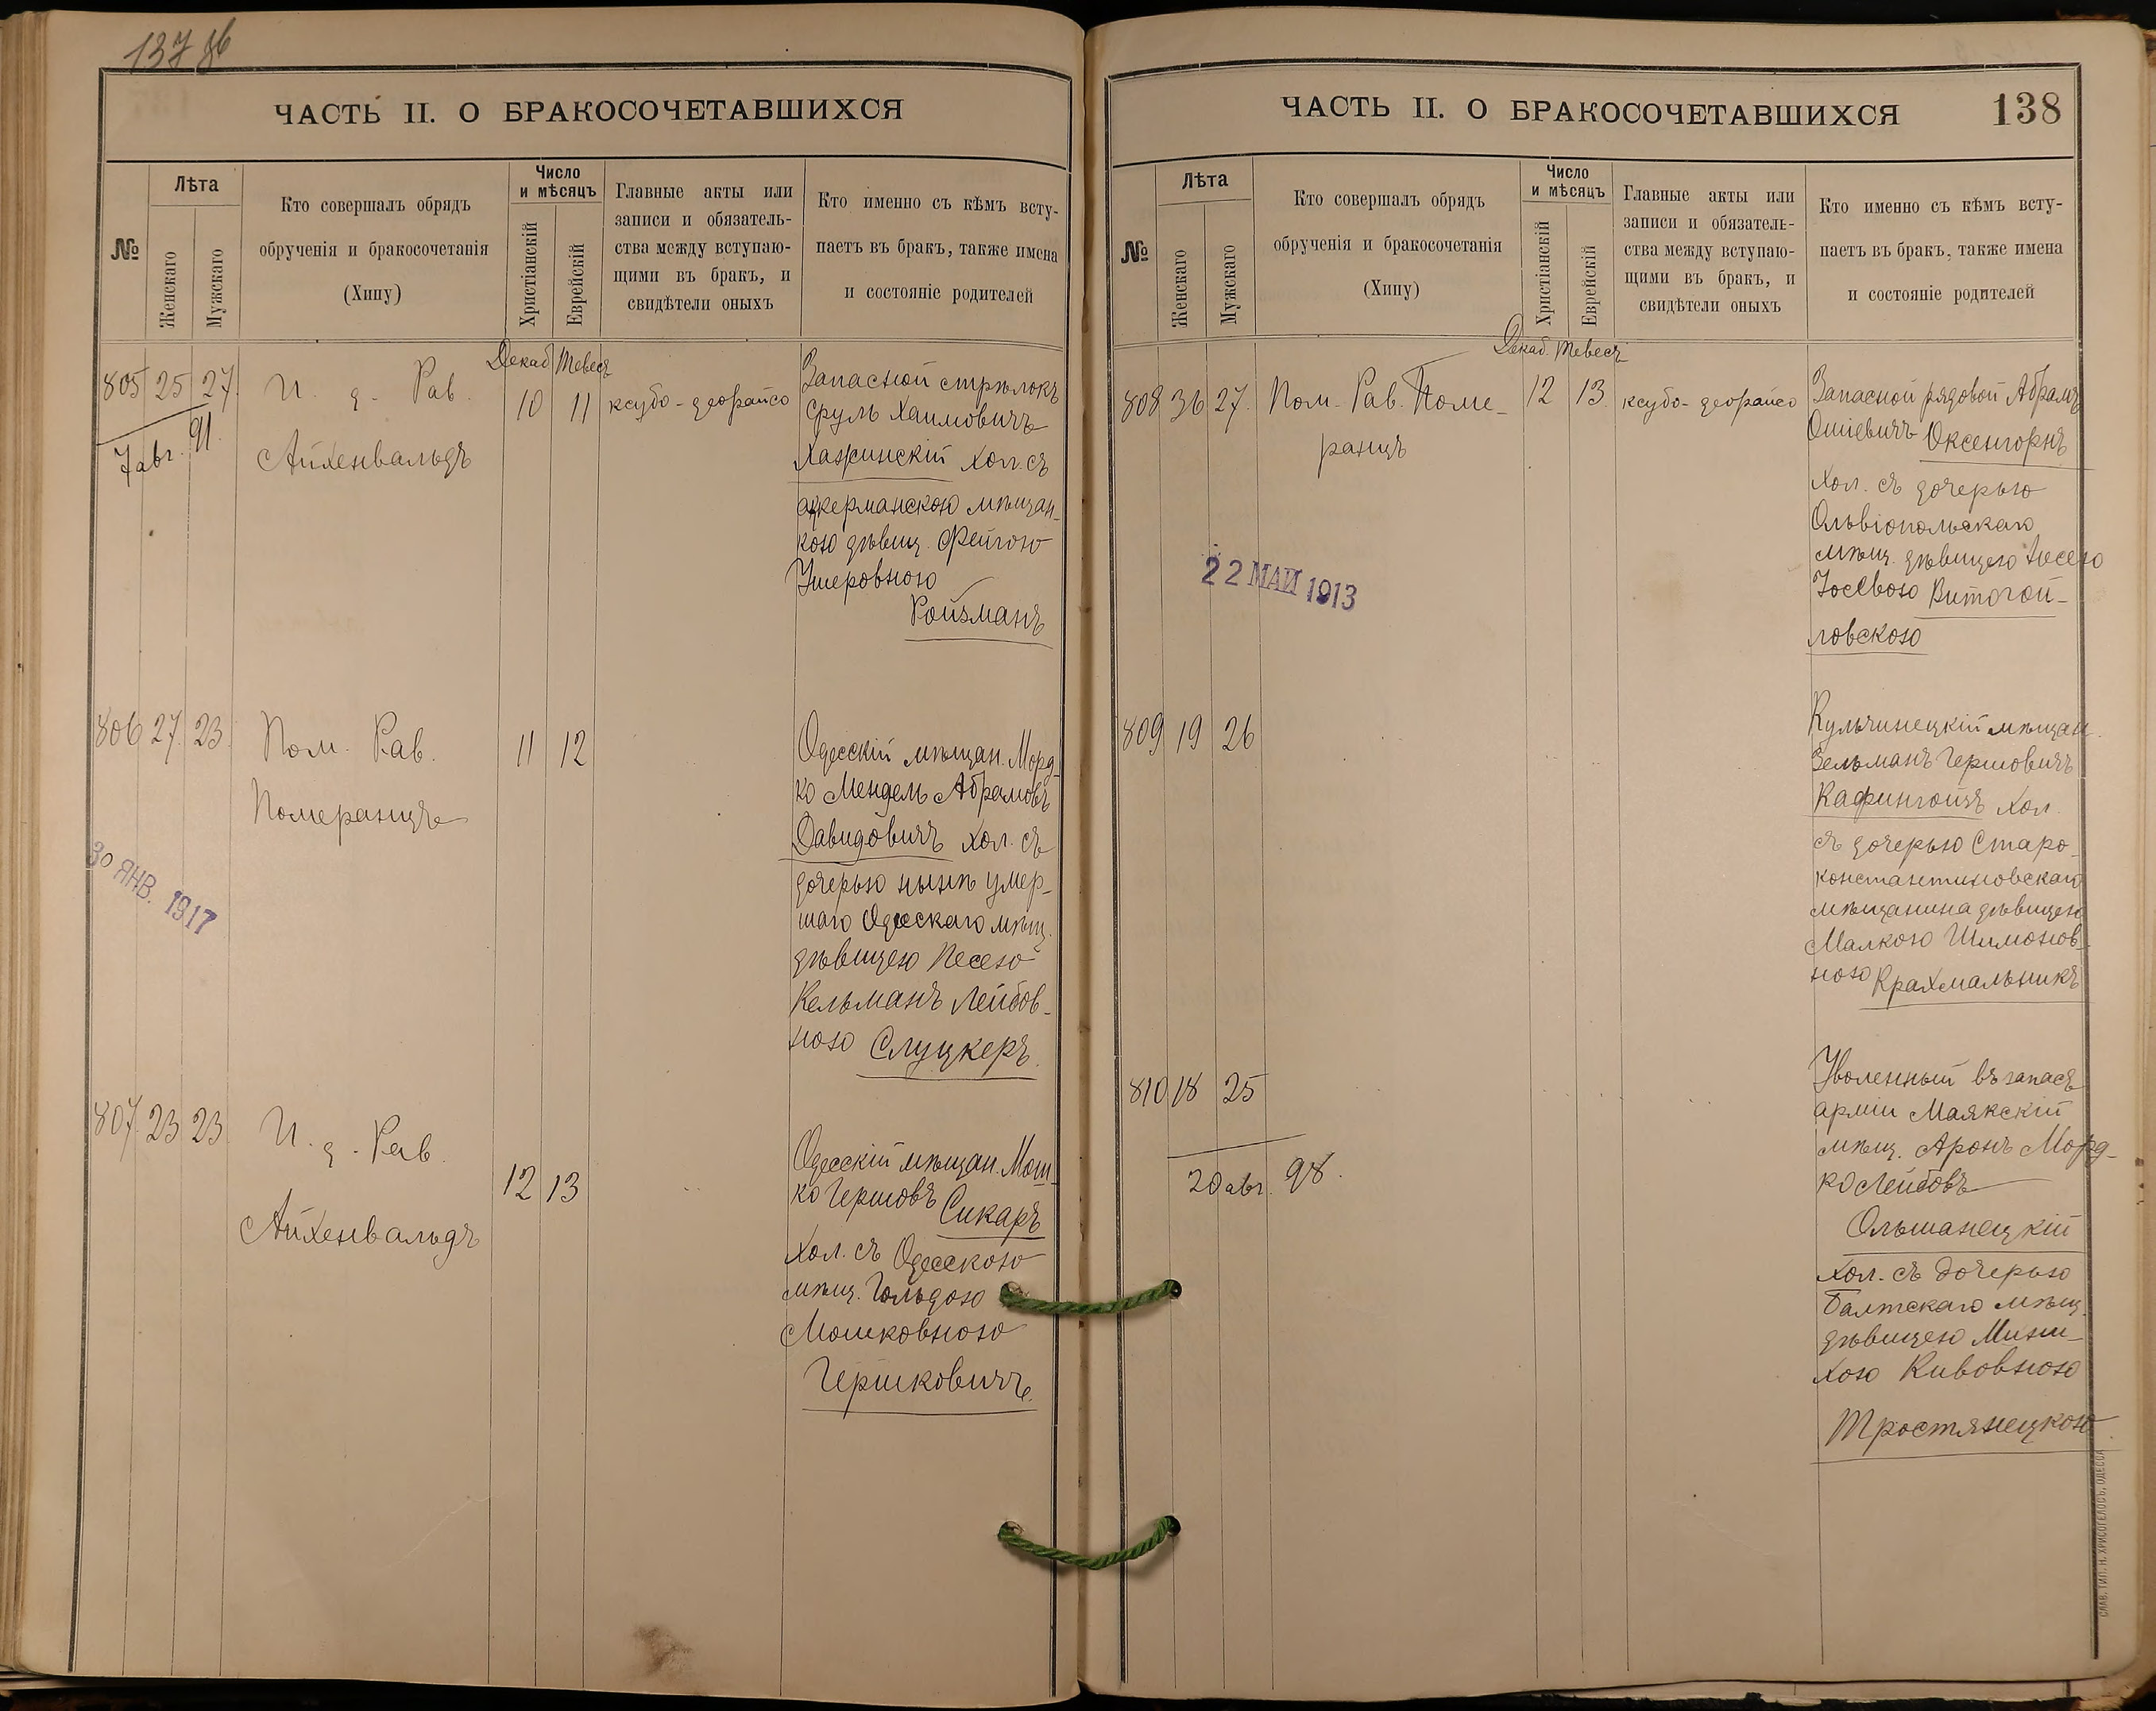 137 об
ЧАСТЬ II. О БРАКОСОЧЕТАВШИХСЯ
№
Лѣта
Женскаго
Мужскаго
Кто совершалъ обрядъ
обрученія и бракосочетанія
(Хипу)
Число
и мѣсяцъ
Христіанскій
Еврейскій
Главные акты или
записи и обязатель-
ства между вступаю-
щими въ бракъ, и
свидѣтели оныхъ
Кто именно съ кѣмъ всту-
паетъ въ бракъ, также имена
и состояніе родителей
Декаб. Тевесъ
805 25 27.
И. д. Рав.
Айхенвальдъ
10 11
ксубо-деорайсо
Запасной стрѣлокъ
Сруль Хаимовичъ
Хажинскій хол. съ
аккерманскою мѣщан-
кою дѣвиц. Фейгою
Ушеровною
Ройзманъ
7 авг. 91.
806 27 23
Пом. Рав.
Померанцъ
11 12
Одесскій мѣщан. Морд-
ко Мендель Абрамовъ
Давидовичъ хол. съ
дочерью нынѣ умер-
шаго Одесскаго мѣщ.
дѣвицею Песею
Кельманъ Лейбов-
ною Слуцкеръ.
30 ЯНВ. 1917
807. 23 23
И. д. Рав.
Айхенвальдъ
12 13
Одесскій мѣщан. Мош-
ко Гершовъ Сикаръ
хол. съ Одесскою
мѣщ. Гольдою
Мошковною
Гершковичъ.
ЧАСТЬ II. О БРАКОСОЧЕТАВШИХСЯ
138
№
Лѣта
Женскаго
Мужскаго
Кто совершалъ обрядъ
обрученія и бракосочетанія
(Хипу)
Число
и мѣсяцъ
Христіанскій
Еврейскій
Главные акты или
записи и обязатель-
ства между вступаю-
щими въ бракъ, и
свидѣтели оныхъ
Кто именно съ кѣмъ всту-
паетъ въ бракъ, также имена
и состояніе родителей
Декаб. Тевесъ
808 36 27.
Пом. Рав. Поме-
ранцъ
12 13.
ксубо-деорайсо
Запасной рядовой Абрамъ
Ошіевичъ Оксенгорнъ
хол. съ дочерью
Ольвіопольскаго
мѣщ. дѣвицею
Витогой-
ловскою
22 МАЙ 1913
809 19 26
Кульчинецкій мѣщан.
Зельманъ Гершовичъ
Кафингольцъ хол.
съ дочерью Старо-
константиновскаго
мѣщанина дѣвицею
Малкою Шимонов-
ною Крахмальникъ
810 18 25
Уволенный въ запасъ
арміи Маякскій
мѣщ. Аронъ Морд-
ко Лейбовъ
Ольшанецкій
хол. съ дочерью
Балтскаго мѣщ.
дѣвицею
хою Кивовною
Тростянецкою
20 авг. 98.
СЛАВ. ТИП. Н. ХРИСОГЕЛОСЪ, ОДЕССА